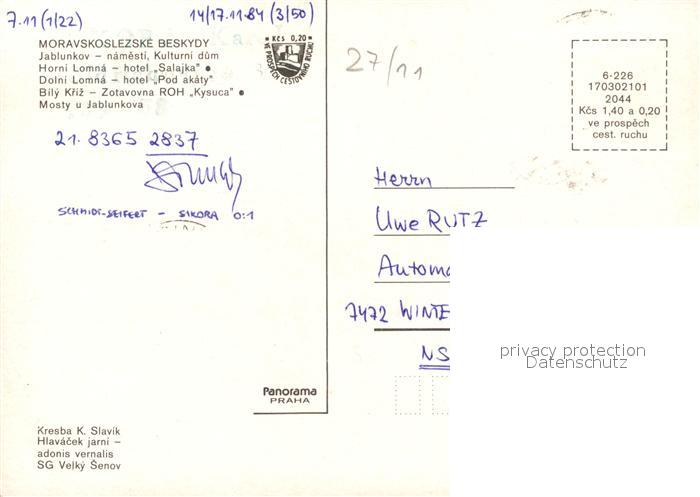 7.11 (1/22)
14/17.11.84 (3/50)
MORAVSKOSLEZSKÉ BESKYDY
Jablunkov – náměstí, Kulturní dům
Horní Lomná – hotel „Salajka" ●
Dolní Lomná – hotel „Pod akáty"
Bílý Kříž – Zotavovna ROH „Kysuca" ●
Mosty u Jablunkova
Kčs 0,20
VE PROSPĚCH CESTOVNÍHO RUCHU
27/11
6-226
170302101
2044
Kčs 1,40 a 0,20
ve prospěch
cest. ruchu
21. 8365 2837
SCHMIDT-SEIFERT – SIKORA 0:1
Herrn
Uwe RUTZ
Automa
7472 WINTE
NS
privacy protection
Datenschutz
Panorama
PRAHA
Kresba K. Slavík
Hlaváček jarní –
adonis vernalis
SG Velký Šenov